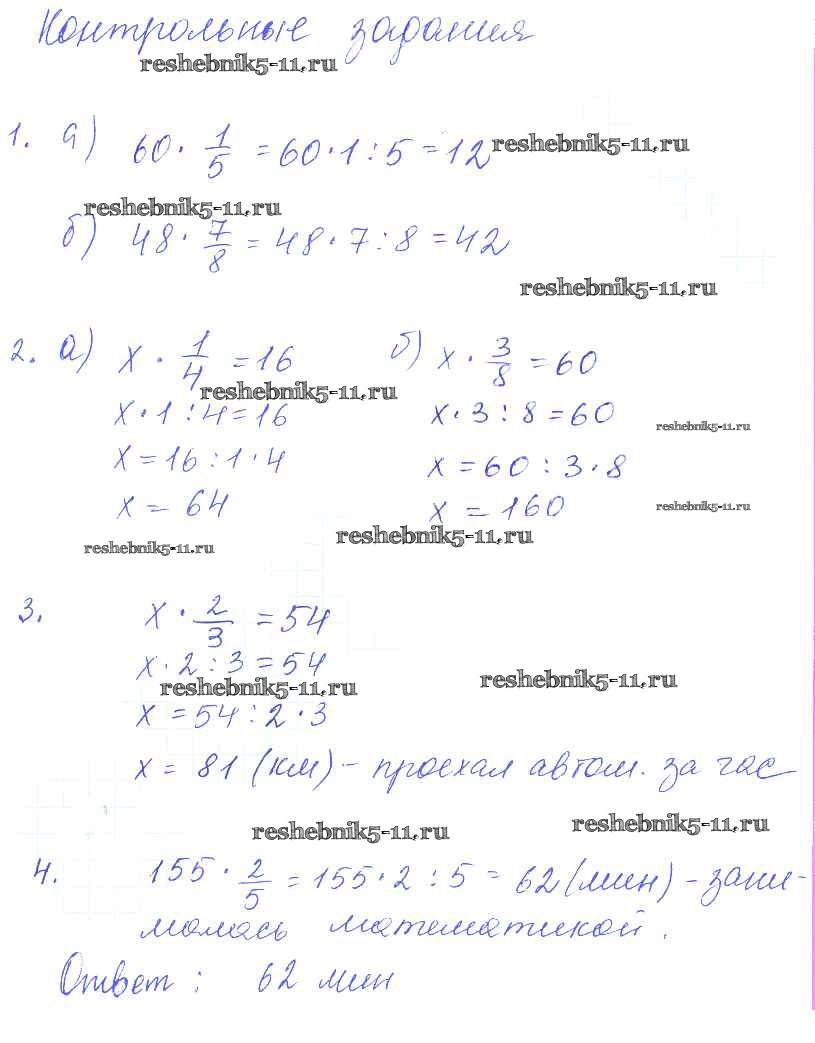 Контрольные задания
reshebnik5-11.ru
1. а) 60 · 1/5 = 60 · 1 : 5 = 12 reshebnik5-11.ru
reshebnik5-11.ru
б) 48 · 7/8 = 48 · 7 : 8 = 42
reshebnik5-11.ru
2. а) x · 1/4 = 16 б) x · 3/8 = 60
reshebnik5-11.ru
x · 1 : 4 = 16 x · 3 : 8 = 60 reshebnik5-11.ru
x = 16 : 1 · 4 x = 60 : 3 · 8
x = 64 x = 160 reshebnik5-11.ru
reshebnik5-11.ru reshebnik5-11.ru
3. x · 2/3 = 54
x · 2 : 3 = 54
reshebnik5-11.ru reshebnik5-11.ru
x = 54 : 2 · 3
x = 81 (км) – проехал автом. за час
reshebnik5-11.ru reshebnik5-11.ru
4. 155 · 2/5 = 155 · 2 : 5 = 62 (мин) – зани-
малась математикой.
Ответ : 62 мин